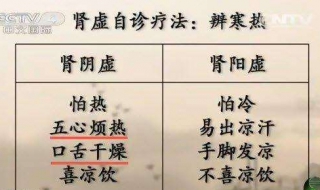 肾虚自诊疗法：辨寒热
肾阴虚 肾阳虚
怕热 怕冷
五心烦热 易出凉汗
口舌干燥 手脚发凉
喜凉饮 不喜凉饮